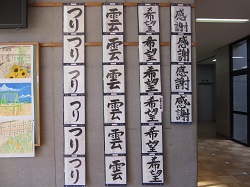 感謝
感謝
感謝
感謝
希望
希望
希望
希望
希望
希望
雲
雲
雲
雲
雲
雲
つり
つり
つり
つり
つり
つり